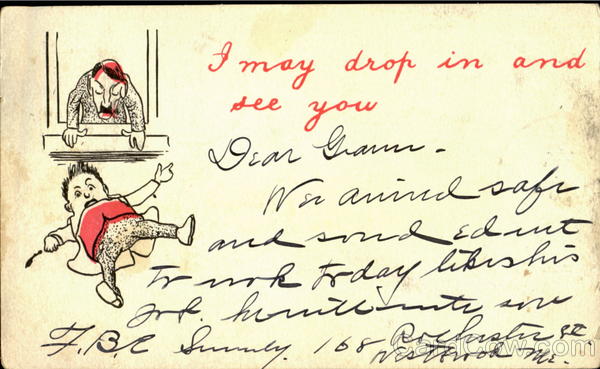 I may drop in and
see you
Dear Gram -
We arrived safe
and sound Ed went
to work today likes his
job. he will write soon
F.B.C 168 Rochester St
Westbrook Me.
CardCow.com